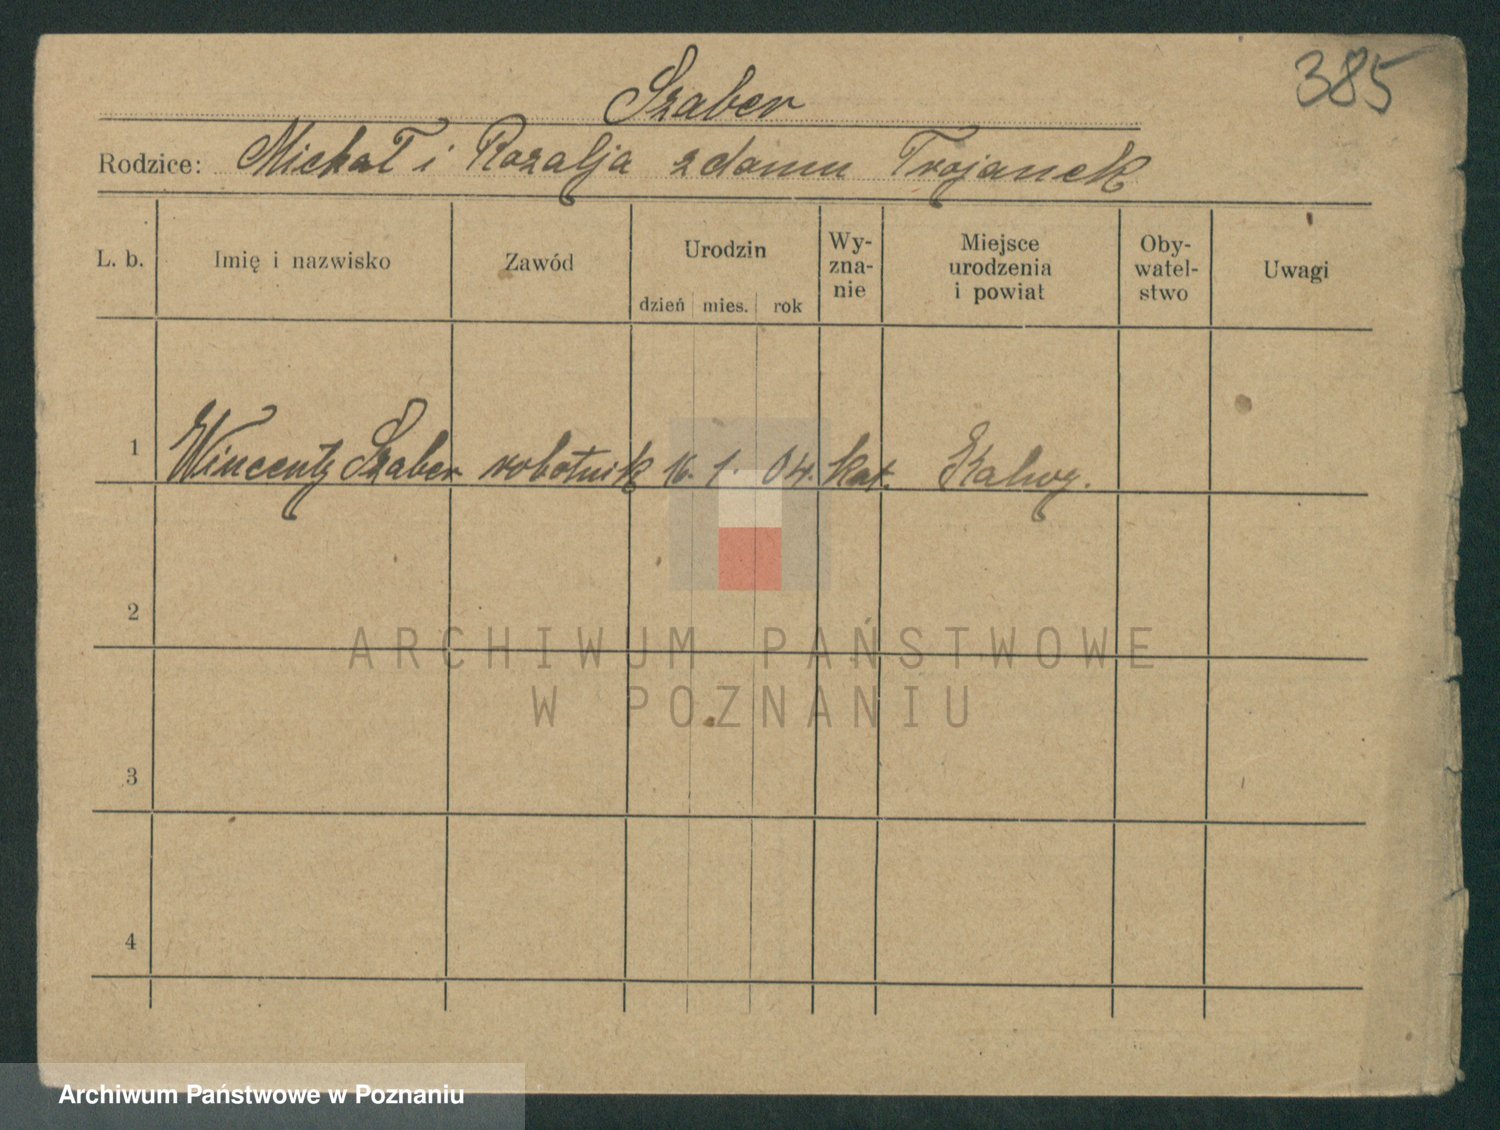 385
Szaber
Rodzice: Michał i Rozalja z domu Trojanek
L. b. Imię i nazwisko Zawód Urodzin Wy- Miejsce Oby- Uwagi
zna- urodzenia watel-
nie i powiat stwo
dzień mies. rok
1 Wincenty Szaber robotnik 16. 1. 04. kat.
2
ARCHIWUM PAŃSTWOWE
W POZNANIU
3
4
Archiwum Państwowe w Poznaniu